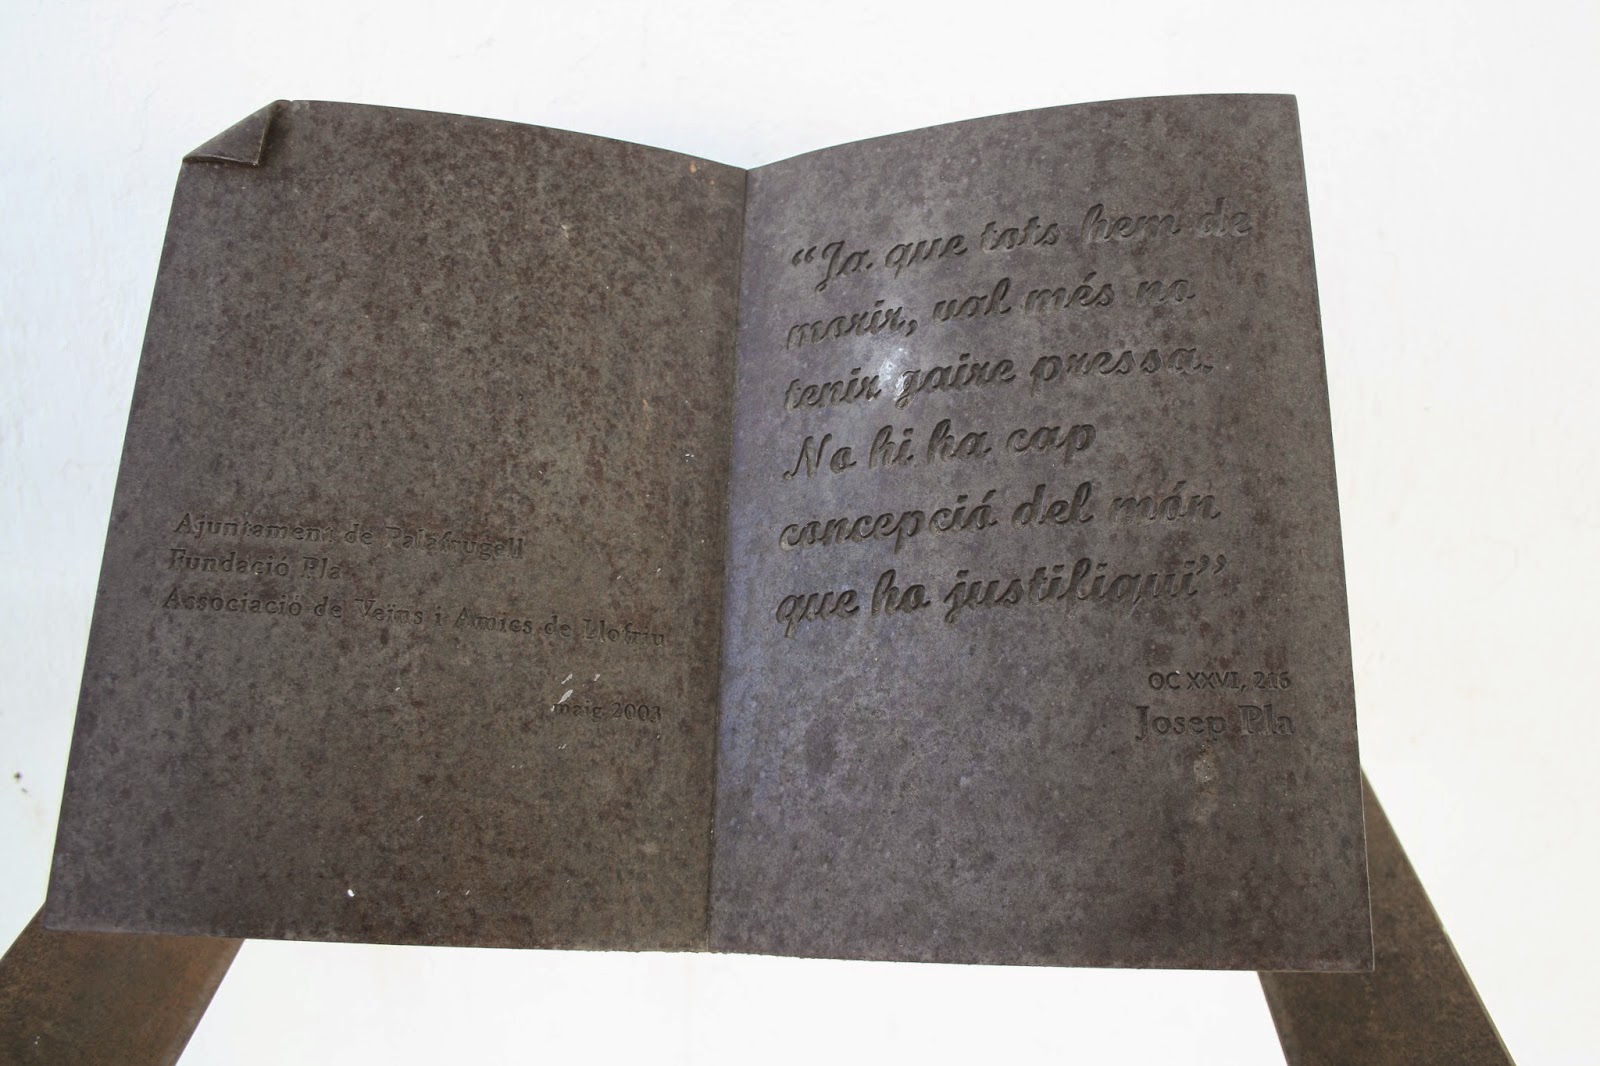 Ajuntament de Palafrugell
Fundació Pla
Associació de Veïns i Amics de Llofriu
maig 2003
“Ja que tots hem de
morir, val més no
tenir gaire pressa.
No hi ha cap
concepció del món
que ho justifiqui”
OC XXVI, 246
Josep Pla